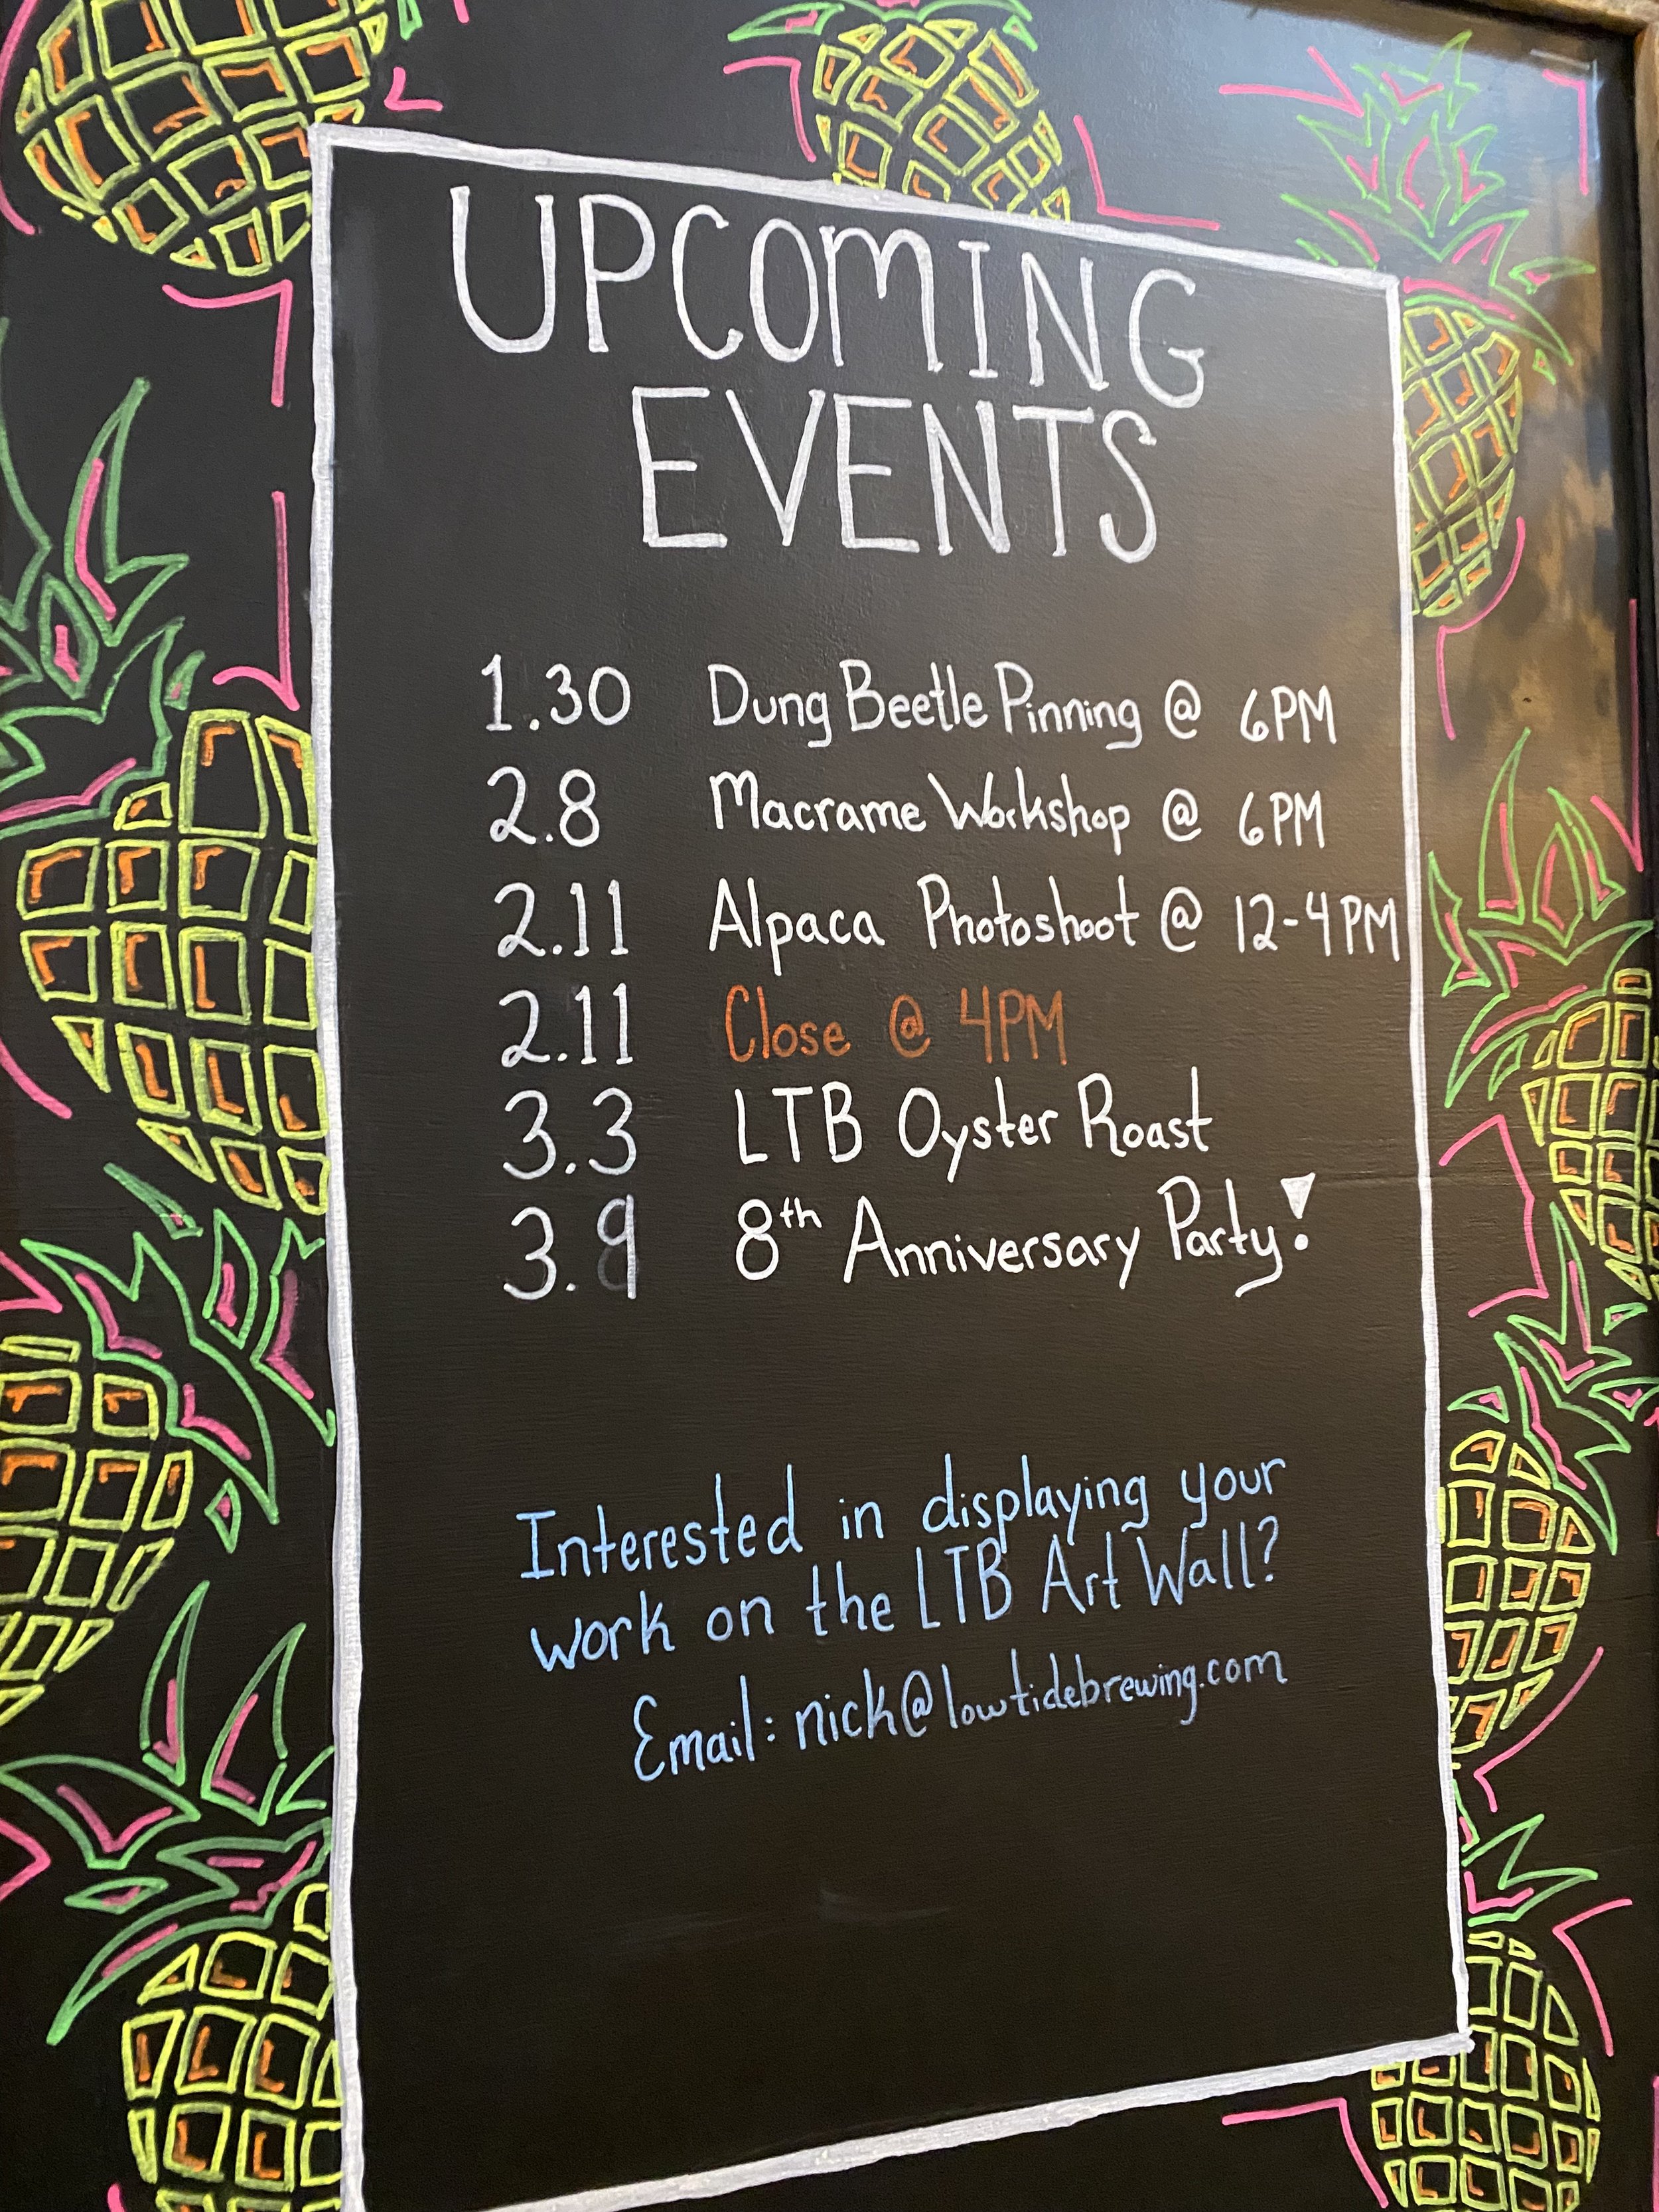 UPCOMING
EVENTS
1.30 Dung Beetle Pinning @ 6PM
2.8 Macrame Workshop @ 6PM
2.11 Alpaca Photoshoot @ 12-4PM
2.11 Close @ 4PM
3.3 LTB Oyster Roast
3.9 8th Anniversary Party!
Interested in displaying your
work on the LTB Art Wall?
Email: nick@lowtidebrewing.com